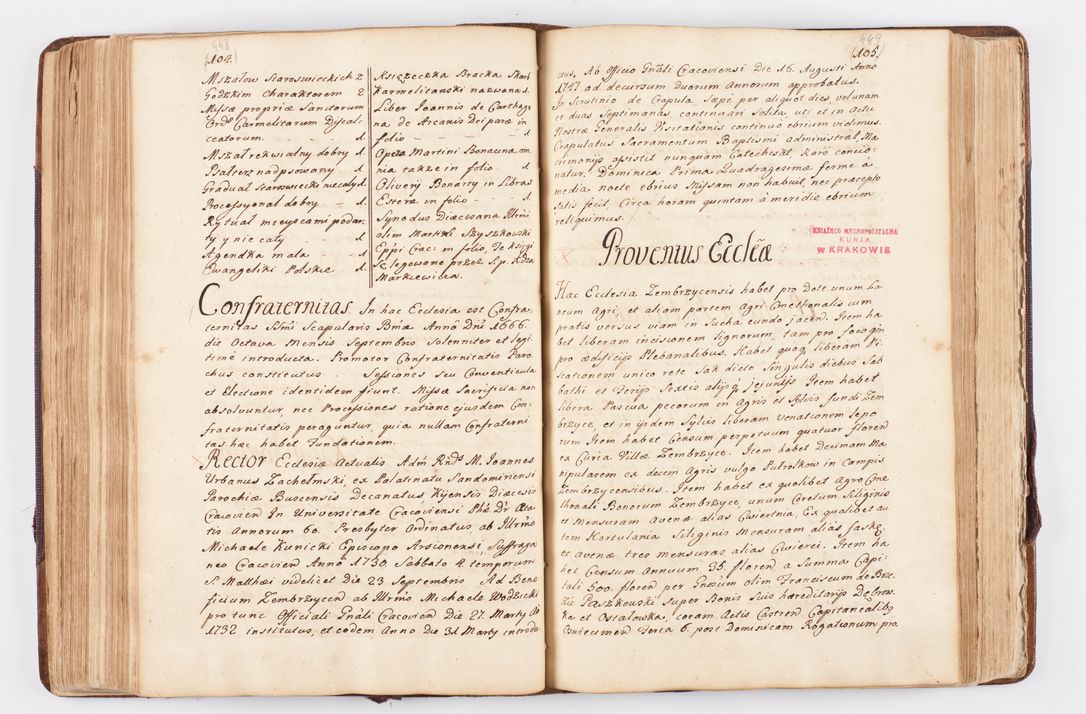 448
(104.)
Mszałow Staroswieckich 2
Godzkim Charakterem 2
Missæ propriæ Sanctorum
Ord: Carmelitarum Discal:
ceatorum. 1.
Mszał rekwialny dobry 1.
Bałecz nadpsowany 1
Graduał Staroswiecki niecały 1.
Processyonał dobry 1.
Rytuał mieyscami podar,
ty y nie cały 1
Agendka mała 1
Ewangeliki Polskie 1
Księzeczka Bracka Skarb
Karmelitanski nazwana 1.
Liber Joannis de Carthage
na de Arcanis Deiparæ in
folio 1.
Opera Martini Bonacina om,
nia takze in folio 1.
Oliverÿ Bonarty in Libros
Esteræ in folio 1.
Synodus Diæcesana Illmi
olim Martini Szyszkowski
Eppi Crac: in folio, Te księgi
Są legowane przez S.p. Xdza
Markiewicza.
Confraternitas. In hac Ecclesia est Confra,
ternitas Ssmi Scapularis Bmæ Anno Dni 1666.
die Octava Mensis Septembris Solenniter et legi,
timè introducta. Promotor Confraternitatis Paro
chus constitutus. Sessiones seu Conventicula
et Electione identidem fiunt. Missæ Sacrificia non
absolvuntur, nec Processiones ratione ejusdem Con,
fraternitatis peraguntur, quia nullam Confraterni
tas hæc habet Fundationem.
Rector Ecclesiæ Actualis Adm Rnds M. Joannes
Urbanus Zachelmski, ex Palatinatu Sandomiriensi
Parochiæ Buscensis Decanatus Kijensis Diæcesis
Cracovien In Universitate Cracoviensi Phæ Dr Æta
tis Annorum 60. Presbyter Ordinatus ab Illrmo
Michaele Kunicki Episcopo Arsionensi, Suffraga
neo Cracovien Anno 1730. Sabbato 4. temporum
S. Matthæi videlicet die 23 Septembris Ad Bene
ficium Zembrzycen ab Illrmo Michaele Wodzicki
pro tunc Officiali Gnali Cracovien Die 27. Marty A
1732 institutus, et eodem Anno die 31 Marty introdu
449
(105.)
ctus, Ab Officio Gnali Cracoviensi Die 16. Augusti Anno
1747 ad decursum Duorum Annorum approbatus.
In Scrutinio de Crapula Sæpe per aliquot dies, vel unam
et duas Septimanas, continuari Solita, uti et in Actu
Nostræ Generalis Visitationis continuò ebrium vidimus.
Crapulatus Sacramentum Baptismi administrat, Ma
trimonijs assistit nunquam Catechisat, Rarò concio
natur. Dominica Prima Quadragesimæ fermè à
media nocte ebrius Missam non habuit, nec præcepto
satis fecit. Circa horam quintam à meridie ebrium
reliquimus.
KSIĄŻĘCO METROPOLITALNA
KURJA
w KRAKOWIE
Proventus Ecclæ
Hæc Ecclesia Zembrzycensis habet pro Dote unum La
neum Agri, et aliam partem Agri Cmethonalis cum
pratis versus viam in Sucha eundo jacen. Item ha
bet liberam incisionem lignorum, tam pro foco qm
pro ædificijs Plebanalibus. Habet quoq liberam Pi
scationem unico rete Sak dicto Singulis diebus Sab
bathi et Ferijs Sextis alijsq jejunijs Item habet
libera Pascua pecorum in Agris et Sylvis fundi Zem
brzyce, et in ijsdem Sylvis liberam venationem Lepo
rum Item habet Censum perpetuum quatuor floren
ex Curia Villæ Zembrzyce. Item habet Decimam Ma
nipularem ex decem Agris vulgo Putroskow in Campis
Zembrzycensibus. Item habet ex quolibet Agro Cme
thonali Bonorum Zembrzyce, unum Coretum Siliginis
et mensuram Avenæ alias Cwiertnia, Ex qualibet au
tem Kartulania Siliginis mensuram alias faskę
et Avenæ tres mensuras alias Cwierci. Item ha
bet Censum Annuum 35. floren a Summa Capi
tali 500. floren per Gnosum olim Franciscum de Brze
zie Paszkowski Super Bonis Suis hæreditarijs Dębrow
ka et Ostałowka, coram Actis Castren Capitanealibq
Oswiecimen Feria 6. post Dominicam Rogationum pro,